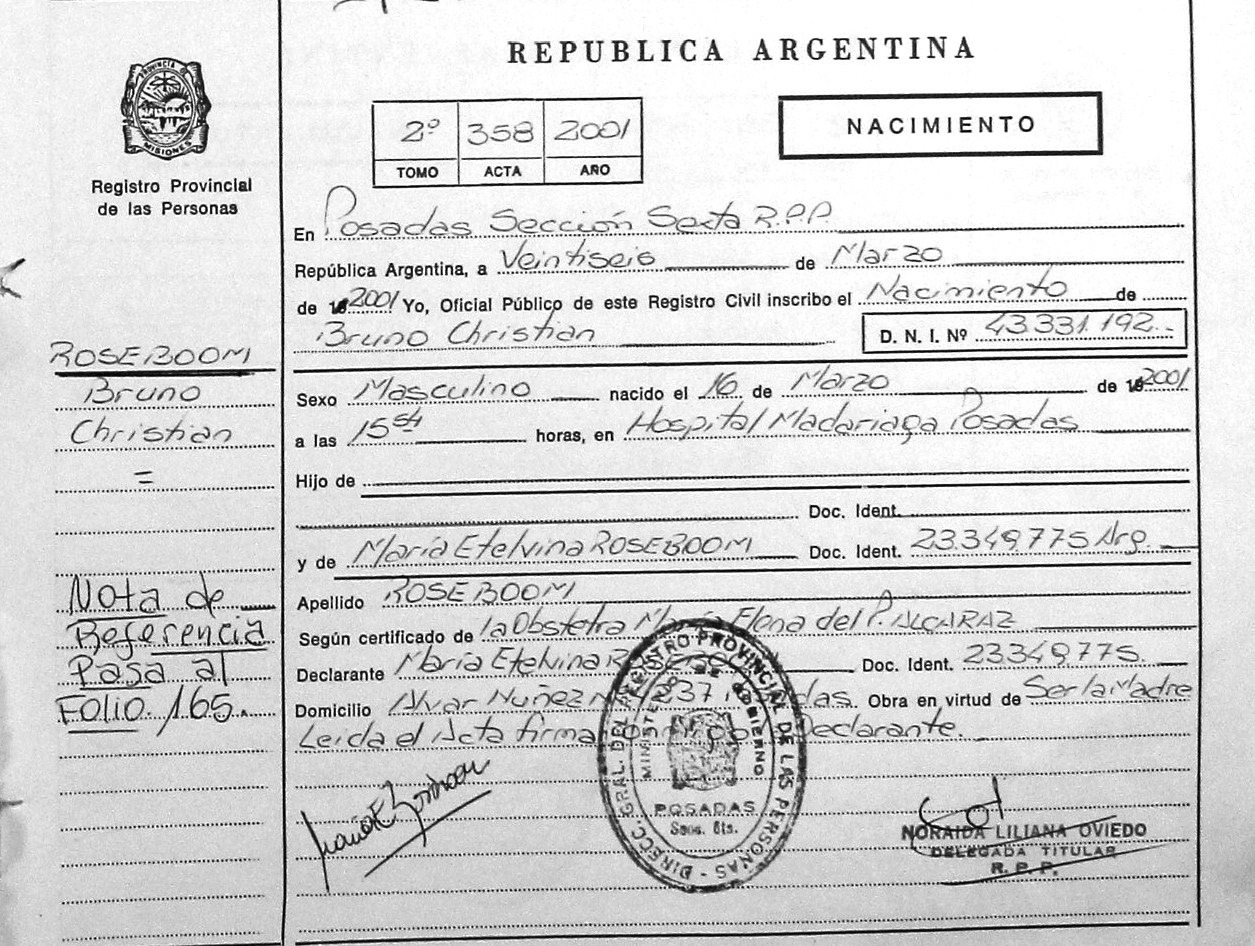 REPUBLICA ARGENTINA
PROVINCIA DE MISIONES
Registro Provincial
de las Personas
2º 358 2001
TOMO ACTA AÑO
NACIMIENTO
En Posadas Sección Sexta R.P.P.
República Argentina, a Veintiseis de Marzo
de 2001 Yo, Oficial Público de este Registro Civil inscribo el Nacimiento de
Bruno Christian D. N. I. Nº 43.331.192
Sexo Masculino nacido el 16 de Marzo de 2001
a las 15 horas, en Hospital Madariaga Posadas
Hijo de
Doc. Ident.
y de María Etelvina ROSEBOOM Doc. Ident. 23.349.775 Arg.
Apellido ROSEBOOM
Según certificado de la Obstetra María Elena del P. ALCARAZ
Declarante María Etelvina Doc. Ident. 23349.775.
Domicilio Alvar Nuñez Obra en virtud de Ser la Madre
Leída el Acta firma Declarante.
ROSEBOOM
Bruno
Christian
=
Nota de
Referencia
Pasa al
Folio 165.
DIRECC. GRAL. DEL REGISTRO PROVINCIAL DE LAS PERSONAS
MINISTERIO DE GOBIERNO
POSADAS
NORAIDA LILIANA OVIEDO
DELEGADA TITULAR
R. P. P.